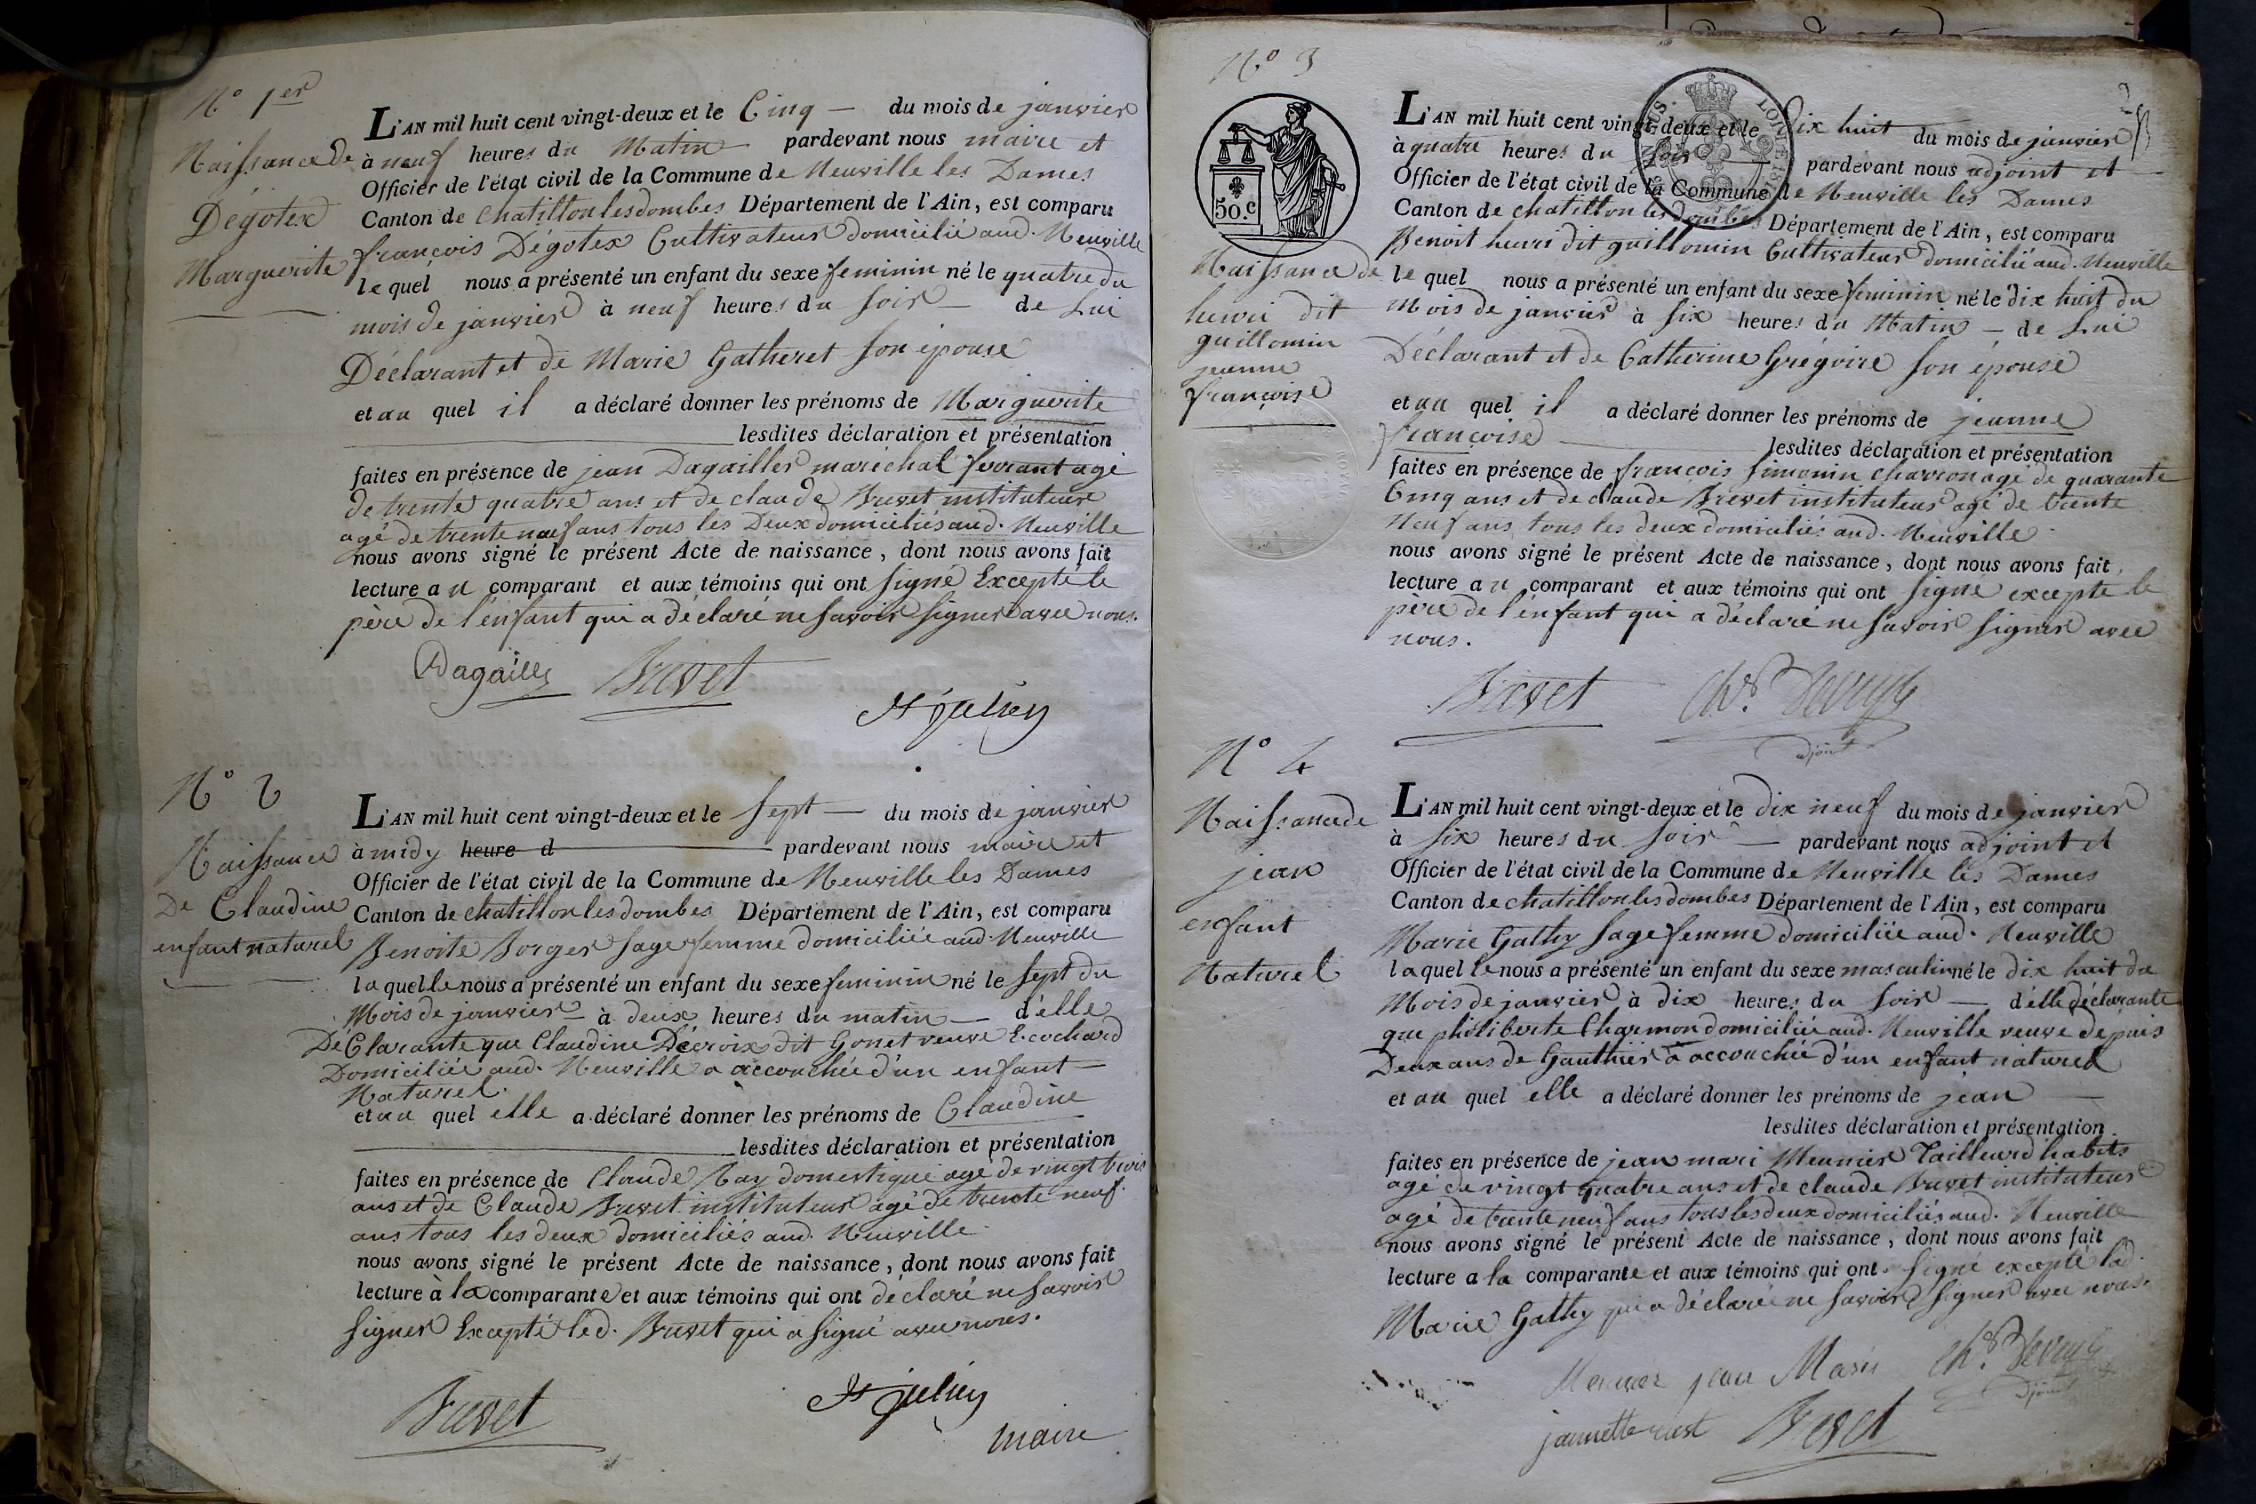 N° 1er
Naissance de
Dégotex
Marguerite
L'AN mil huit cent vingt-deux et le Cinq — du mois de janvier
à neuf heures du Matin — pardevant nous maire et
Officier de l'état civil de la Commune de Neuville les Dames
Canton de chatillon les dombes Département de l'Ain, est comparu
françois Dégotex Cultivateur domicilié aud. Neuville
le quel nous a présenté un enfant du sexe feminin né le quatre du
mois de janvier à neuf heures du soir — de Lui
Déclarant et de Marie Gatheret son épouse
et au quel il a déclaré donner les prénoms de Marguerite
lesdites déclaration et présentation
faites en présence de jean Dagailler maréchal ferrant agé
de trente quatre ans et de claude Brevet instituteur
agé de trente neuf ans tous les Deux domiciliés aud. Neuville
nous avons signé le présent Acte de naissance, dont nous avons fait
lecture au comparant et aux témoins qui ont signé Excepté le
père de l'enfant qui a déclaré ne savoir signer avec nous.
Dagailler Brevet
St julien
N° 2
Naissance
De Claudine
enfant naturel
L'AN mil huit cent vingt-deux et le sept — du mois de janvier
à midy heure d pardevant nous maire et
Officier de l'état civil de la Commune de Neuville les Dames
Canton de chatillon les dombes Département de l'Ain, est comparu
Benoite Borges sage femme domiciliée aud. Neuville
laquelle nous a présenté un enfant du sexe feminin né le sept du
Mois de janvier à deux heures du matin — d'elle
Déclarante que Claudine Décroix dit Gonet veuve Ecochard
Domiciliée aud. Neuville a accouchée d'un enfant
Naturel.
et au quel elle a déclaré donner les prénoms de Claudine
lesdites déclaration et présentation
faites en présence de Claude Ray domestique agé de vingt trois
ans et de Claude Brevet instituteur agé de trente neuf
ans tous les deux domiciliés aud. Neuville
nous avons signé le présent Acte de naissance, dont nous avons fait
lecture à la comparante et aux témoins qui ont déclaré ne savoir
signer Excepté led. Brevet qui a signé avec nous.
Brevet St julien
maire
N° 3
50.c
Naissance de
henri dit
guillomin
jeanne
françoise
L'AN mil huit cent vingt-deux et le Dix huit du mois de janvier
à quatre heures du soir pardevant nous adjoint et
Officier de l'état civil de la Commune de Neuville les Dames
Canton de chatillon les dombes Département de l'Ain, est comparu
Benoit henri dit guillomin Cultivateur domicilié aud. Neuville
le quel nous a présenté un enfant du sexe feminin né le dix huit du
Mois de janvier à six heures du Matin — de Lui
Déclarant et de Catherine Grégoire son épouse
et au quel il a déclaré donner les prénoms de jeanne
françoise lesdites déclaration et présentation
faites en présence de françois simonin charron agé de quarante
Cinq ans et de claude Brevet instituteur agé de trente
Neuf ans tous les deux domiciliés aud. Neuville
nous avons signé le présent Acte de naissance, dont nous avons fait
lecture au comparant et aux témoins qui ont signé excepté le
père de l'enfant qui a déclaré ne savoir signer avec
nous.
Brevet
adjoint
N° 4
Naissance de
jean
enfant
Naturel
L'AN mil huit cent vingt-deux et le dix neuf du mois de janvier
à six heures du soir — pardevant nous adjoint et
Officier de l'état civil de la Commune de Neuville les Dames
Canton de chatillon les dombes Département de l'Ain, est comparu
Marie Gathy sage femme domiciliée aud. Neuville
laquelle nous a présenté un enfant du sexe masculin né le dix huit du
Mois de janvier à dix heures du soir — d'elle déclarante
que philiberte Charmon domiciliée aud. Neuville veuve depuis
Deux ans de Gauthier a accouchée d'un enfant naturel
et au quel elle a déclaré donner les prénoms de jean
lesdites déclaration et présentation
faites en présence de jean mari Meunier Tailleur d'habits
agé de vingt quatre ans et de claude Brevet instituteur
agé de trente neuf ans tous les deux domiciliés aud. Neuville
nous avons signé le présent Acte de naissance, dont nous avons fait
lecture a la comparante et aux témoins qui ont signé excepté lad.
Marie Gathy qui a déclarée ne savoir signer avec nous.
Meunier jean Marie
adjoint
Brevet